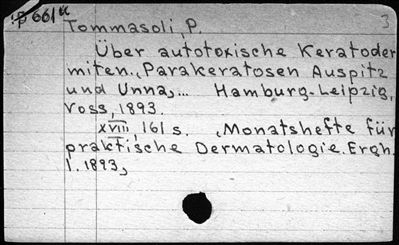 :P 661u
3
Tommasoli, P.
Über autotoxische Keratoder
miten. (Parakeratosen Auspitz
und Unna)... Hamburg-Leipzig,
Voss, 1893.
xviii, 161 s. (Monatshefte für
praktische Dermatologie. Ergh.
1. 1893)